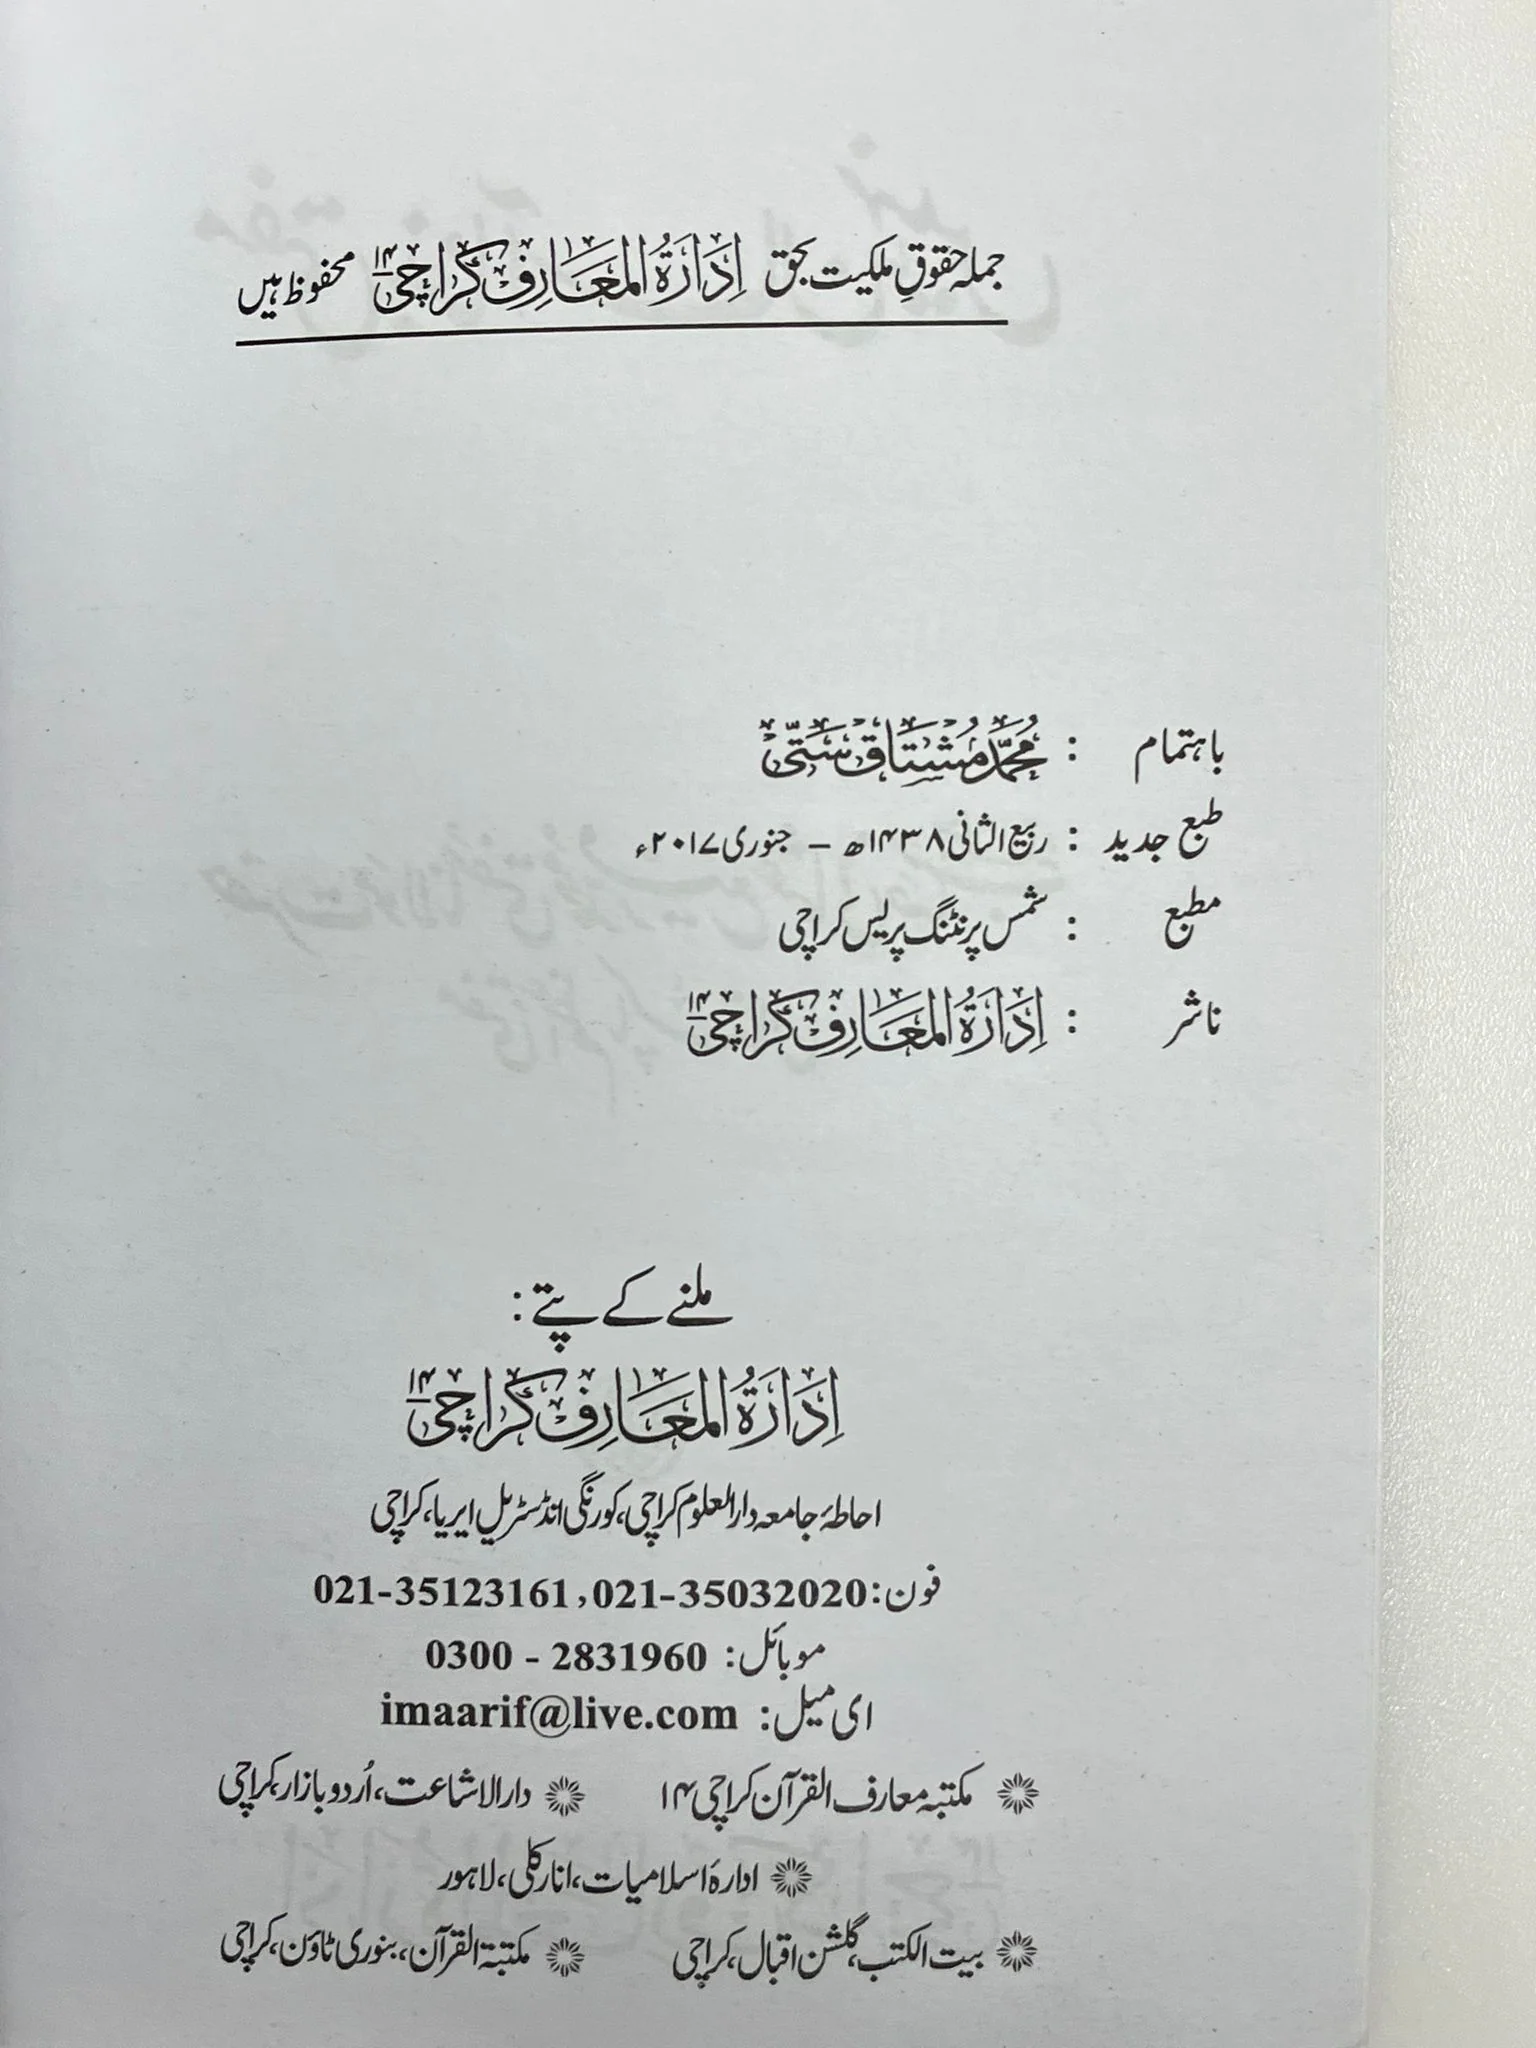 جملہ حقوقِ ملکیت بحق اِدَارَۃُ المَعَارِف کَراچِی ۱۴ محفوظ ہیں
باہتمام : مُحَمَّد مُشتَاق سَتِّی
طبع جدید : ربیع الثانی ۱۴۳۸ھ – جنوری ۲۰۱۷ء
مطبع : شمس پرنٹنگ پریس کراچی
ناشر : اِدَارَۃُ المَعَارِف کَراچِی ۱۴
ملنے کے پتے:
اِدَارَۃُ المَعَارِف کَراچِی ۱۴
احاطۂ جامعہ دارالعلوم کراچی، کورنگی انڈسٹریل ایریا، کراچی
فون: 021-35123161, 021-35032020
موبائل: 0300 - 2831960
ای میل: imaarif@live.com
مکتبہ معارف القرآن کراچی ۱۴ دارالاشاعت، اُردو بازار، کراچی
ادارۂ اسلامیات، انارکلی، لاہور
بیت الکتب، گلشن اقبال، کراچی مکتبۃ القرآن، بنوری ٹاؤن، کراچی